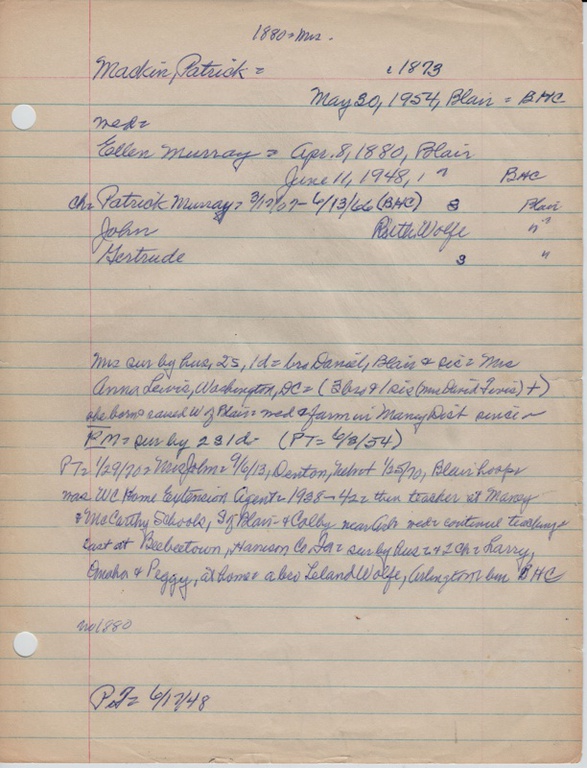 1880 = Mrs.
Mackin, Patrick = c 1873
May 30, 1954, Blair = BHC
med =
Ellen Murray = Apr. 8, 1880, Blair
June 11, 1948, " BHC
ch = Patrick Murray = 3/17/07 - 6/13/66 (BHC) S Blair
John Ruth Wolfe "
Gertrude S "
Mrs sur by hus, 2s, 1d = bro Daniel, Blair & sis = Mrs
Anna Lewis, Washington, DC = (3 bros & 1 sis (Mrs David) +)
she born & raised W of Blair = med & farm in Maney Dist since
P.M = sur by 2s 1d (PT = 6/3/54)
PT = 1/29/70 = Mrs John = 9/6/13, Denton, Nebr + 1/25/70, Blair hosp =
was WC Home Extension Agent = 1938 - 42 = then teacher at Maney
& McCarthy Schools, S of Blair - & Colby near = continue teaching
last at Beebeetown, Harrison Co Ia = sur by hus & 2 ch = Larry,
Omaha & Peggy, at home = also Leland Wolfe, Arlington = bur BHC
no 1880
PT = 6/17/48